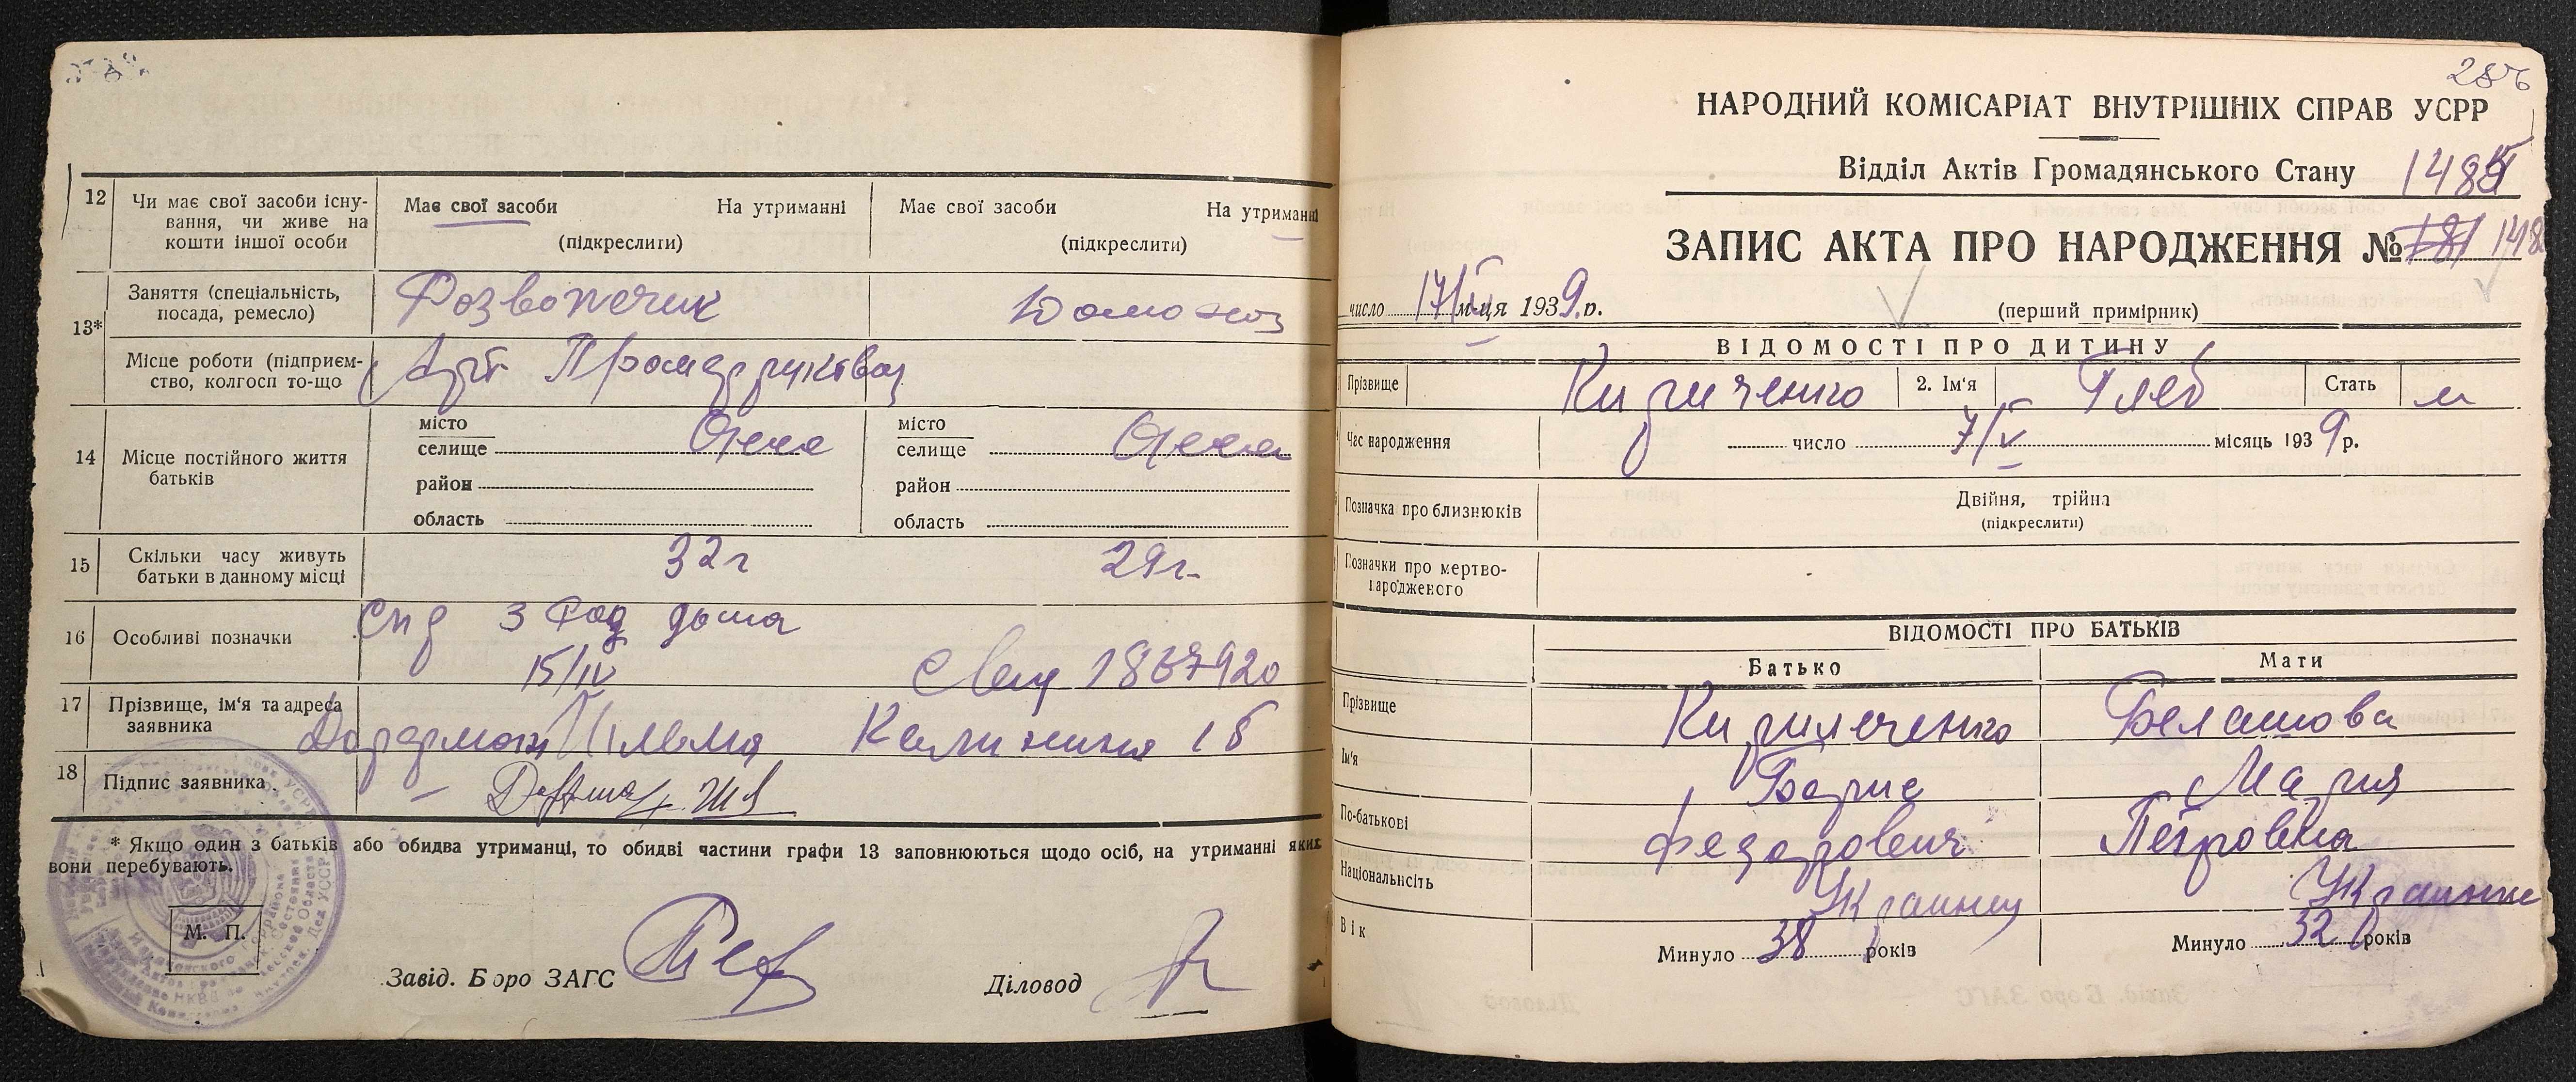 12
Чи має свої засоби існу-
вання, чи живе на
кошти іншої особи
Має свої засоби На утриманні
(підкреслити)
Має свої засоби На утриманні
(підкреслити)
13*
Заняття (спеціальність,
посада, ремесло)
Розвозчик
Домохоз
Місце роботи (підприєм-
ство, колгосп то-що
Арт
14
Місце постійного життя
батьків
місто
селище
район
область
місто
селище
район
область
15
Скільки часу живуть
батьки в данному місці
32 г
29 г.
16
Особливі позначки
З Род дома
15/IV
1867920
17
Прізвище, ім'я та адреса
заявника
Калинина 18
18
Підпис заявника
* Якщо один з батьків або обидва утриманці, то обидві частини графи 13 заповнюються щодо осіб, на утриманні яких
вони перебувають.
М. П.
Завід. Бюро ЗАГС
Діловод
286
НАРОДНИЙ КОМІСАРІАТ ВНУТРІШНІХ СПРАВ УСРР
Відділ Актів Громадянського Стану
ЗАПИС АКТА ПРО НАРОДЖЕННЯ №
число 17/ м-ця 1939 р.
(перший примірник)
ВІДОМОСТІ ПРО ДИТИНУ
Прізвище
Кириченко
2. Ім'я
Глеб
Стать
м
Час народження
число 7/V місяць 1939 р.
Позначка про близнюків
Двійня, трійня
(підкреслити)
Позначки про мертво-
народженого
ВІДОМОСТІ ПРО БАТЬКІВ
Батько
Мати
Прізвище
Белашова
Ім'я
Борис
Мария
По-батькові
Федорович
Петровна
Національність
Украинец
Вік
Минуло 38 років
Минуло 32 років